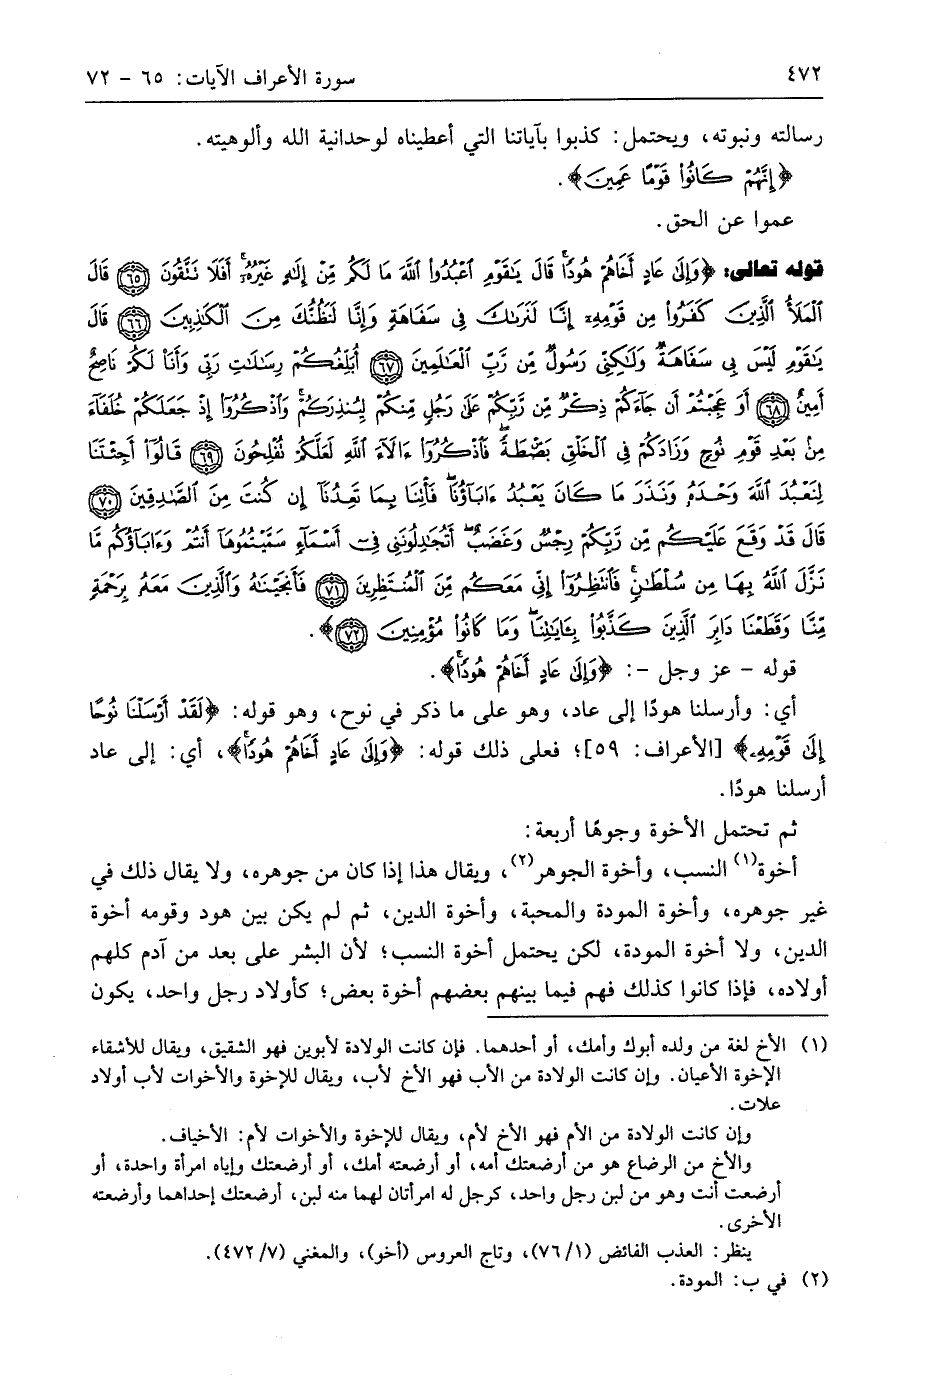 ٤٧٢ سورة الأعراف الآيات: ٦٥ - ٧٢
رسالته ونبوته، ويحتمل: كذبوا بآياتنا التي أعطيناه لوحدانية الله وألوهيته.
﴿إِنَّهُمْ كَانُوا۟ قَوْمًا عَمِينَ﴾.
عموا عن الحق.
قوله تعالى: ﴿وَإِلَىٰ عَادٍ أَخَاهُمْ هُودًاۗ قَالَ يَـٰقَوْمِ ٱعْبُدُوا۟ ٱللَّهَ مَا لَكُم مِّنْ إِلَـٰهٍ غَيْرُهُۥٓۚ أَفَلَا تَتَّقُونَ ﴿٦٥﴾ قَالَ
ٱلْمَلَأُ ٱلَّذِينَ كَفَرُوا۟ مِن قَوْمِهِۦٓ إِنَّا لَنَرَىٰكَ فِى سَفَاهَةٍ وَإِنَّا لَنَظُنُّكَ مِنَ ٱلْكَـٰذِبِينَ ﴿٦٦﴾ قَالَ
يَـٰقَوْمِ لَيْسَ بِى سَفَاهَةٌ وَلَـٰكِنِّى رَسُولٌ مِّن رَّبِّ ٱلْعَـٰلَمِينَ ﴿٦٧﴾ أُبَلِّغُكُمْ رِسَـٰلَـٰتِ رَبِّى وَأَنَا۠ لَكُمْ نَاصِحٌ
أَمِينٌ ﴿٦٨﴾ أَوَعَجِبْتُمْ أَن جَآءَكُمْ ذِكْرٌ مِّن رَّبِّكُمْ عَلَىٰ رَجُلٍ مِّنكُمْ لِيُنذِرَكُمْۚ وَٱذْكُرُوٓا۟ إِذْ جَعَلَكُمْ خُلَفَآءَ
مِنۢ بَعْدِ قَوْمِ نُوحٍ وَزَادَكُمْ فِى ٱلْخَلْقِ بَصْۜطَةًۖ فَٱذْكُرُوٓا۟ ءَالَآءَ ٱللَّهِ لَعَلَّكُمْ تُفْلِحُونَ ﴿٦٩﴾ قَالُوٓا۟ أَجِئْتَنَا
لِنَعْبُدَ ٱللَّهَ وَحْدَهُۥ وَنَذَرَ مَا كَانَ يَعْبُدُ ءَابَآؤُنَاۖ فَأْتِنَا بِمَا تَعِدُنَآ إِن كُنتَ مِنَ ٱلصَّـٰدِقِينَ ﴿٧٠﴾
قَالَ قَدْ وَقَعَ عَلَيْكُم مِّن رَّبِّكُمْ رِجْسٌ وَغَضَبٌۖ أَتُجَـٰدِلُونَنِى فِىٓ أَسْمَآءٍ سَمَّيْتُمُوهَآ أَنتُمْ وَءَابَآؤُكُم مَّا
نَزَّلَ ٱللَّهُ بِهَا مِن سُلْطَـٰنٍۚ فَٱنتَظِرُوٓا۟ إِنِّى مَعَكُم مِّنَ ٱلْمُنتَظِرِينَ ﴿٧١﴾ فَأَنجَيْنَـٰهُ وَٱلَّذِينَ مَعَهُۥ بِرَحْمَةٍ
مِّنَّا وَقَطَعْنَا دَابِرَ ٱلَّذِينَ كَذَّبُوا۟ بِـَٔايَـٰتِنَاۖ وَمَا كَانُوا۟ مُؤْمِنِينَ ﴿٧٢﴾﴾.
قوله - عز وجل -: ﴿وَإِلَىٰ عَادٍ أَخَاهُمْ هُودًاۗ﴾.
أي: وأرسلنا هودًا إلى عاد، وهو على ما ذكر في نوح، وهو قوله: ﴿لَقَدْ أَرْسَلْنَا نُوحًا
إِلَىٰ قَوْمِهِۦ﴾ [الأعراف: ٥٩]؛ فعلى ذلك قوله: ﴿وَإِلَىٰ عَادٍ أَخَاهُمْ هُودًاۗ﴾، أي: إلى عاد
أرسلنا هودًا.
ثم تحتمل الأخوة وجوهًا أربعة:
أخوة(١) النسب، وأخوة الجوهر(٢)، ويقال هذا إذا كان من جوهره، ولا يقال ذلك في
غير جوهره، وأخوة المودة والمحبة، وأخوة الدين، ثم لم يكن بين هود وقومه أخوة
الدين، ولا أخوة المودة، لكن يحتمل أخوة النسب؛ لأن البشر على بعد من آدم كلهم
أولاده، فإذا كانوا كذلك فهم فيما بينهم بعضهم أخوة بعض؛ كأولاد رجل واحد، يكون
(١) الأخ لغة من ولده أبوك وأمك، أو أحدهما. فإن كانت الولادة لأبوين فهو الشقيق، ويقال للأشقاء
الإخوة الأعيان. وإن كانت الولادة من الأب فهو الأخ لأب، ويقال للإخوة والأخوات لأب أولاد
علات.
وإن كانت الولادة من الأم فهو الأخ لأم، ويقال للإخوة والأخوات لأم: الأخياف.
والأخ من الرضاع هو من أرضعتك أمه، أو أرضعته أمك، أو أرضعتك وإياه امرأة واحدة، أو
أرضعت أنت وهو من لبن رجل واحد، كرجل له امرأتان لهما منه لبن، أرضعتك إحداهما وأرضعته
الأخرى.
ينظر: العذب الفائض (١/٧٦)، وتاج العروس (أخو)، والمغني (٧/٤٧٢).
(٢) في ب: المودة.